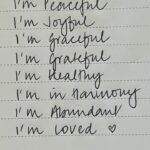 I'm Peaceful
I'm Joyful
I'm Graceful
I'm Grateful
I'm Healthy
I'm in Harmony
I'm Abundant
I'm Loved ♡